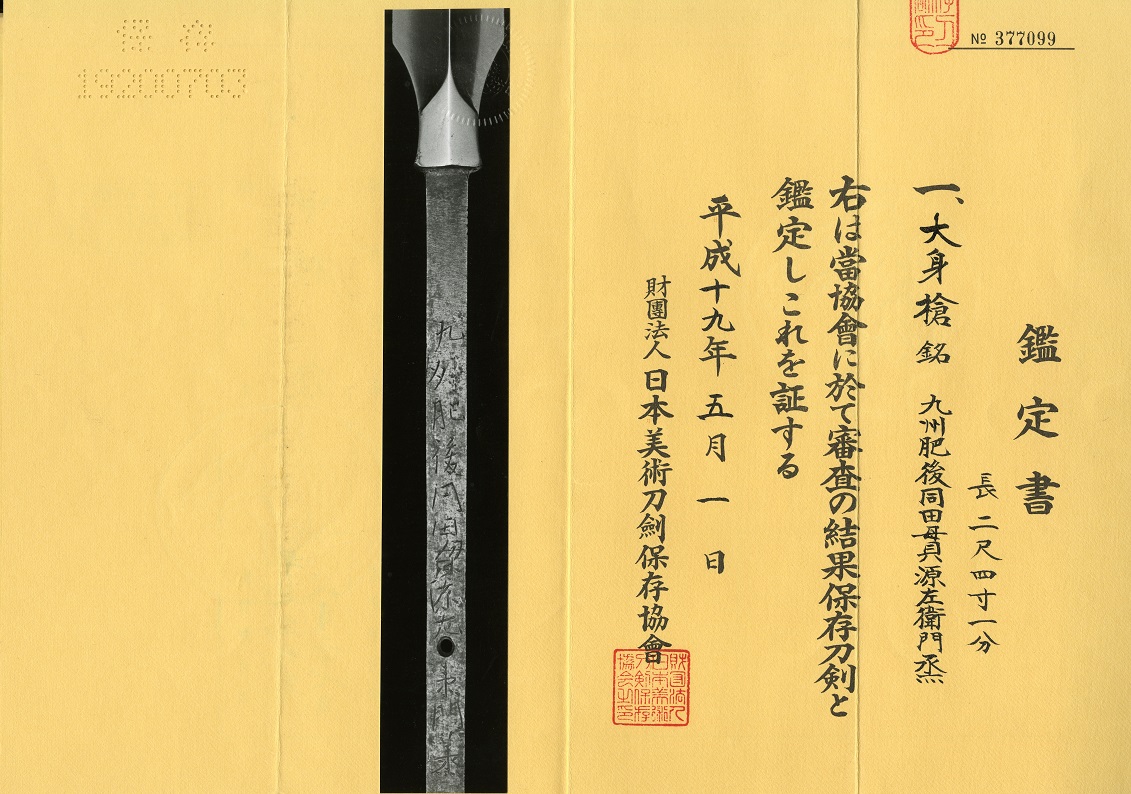 No 377099
鑑定書
一、大身槍 銘 九州肥後同田貫源左衛門烝
長 二尺四寸一分
右は當協會に於て審査の結果保存刀剣と
鑑定しこれを証する
平成十九年五月一日
財團法人日本美術刀劍保存協會
九州肥後同田貫源左衛門
保存
19200703